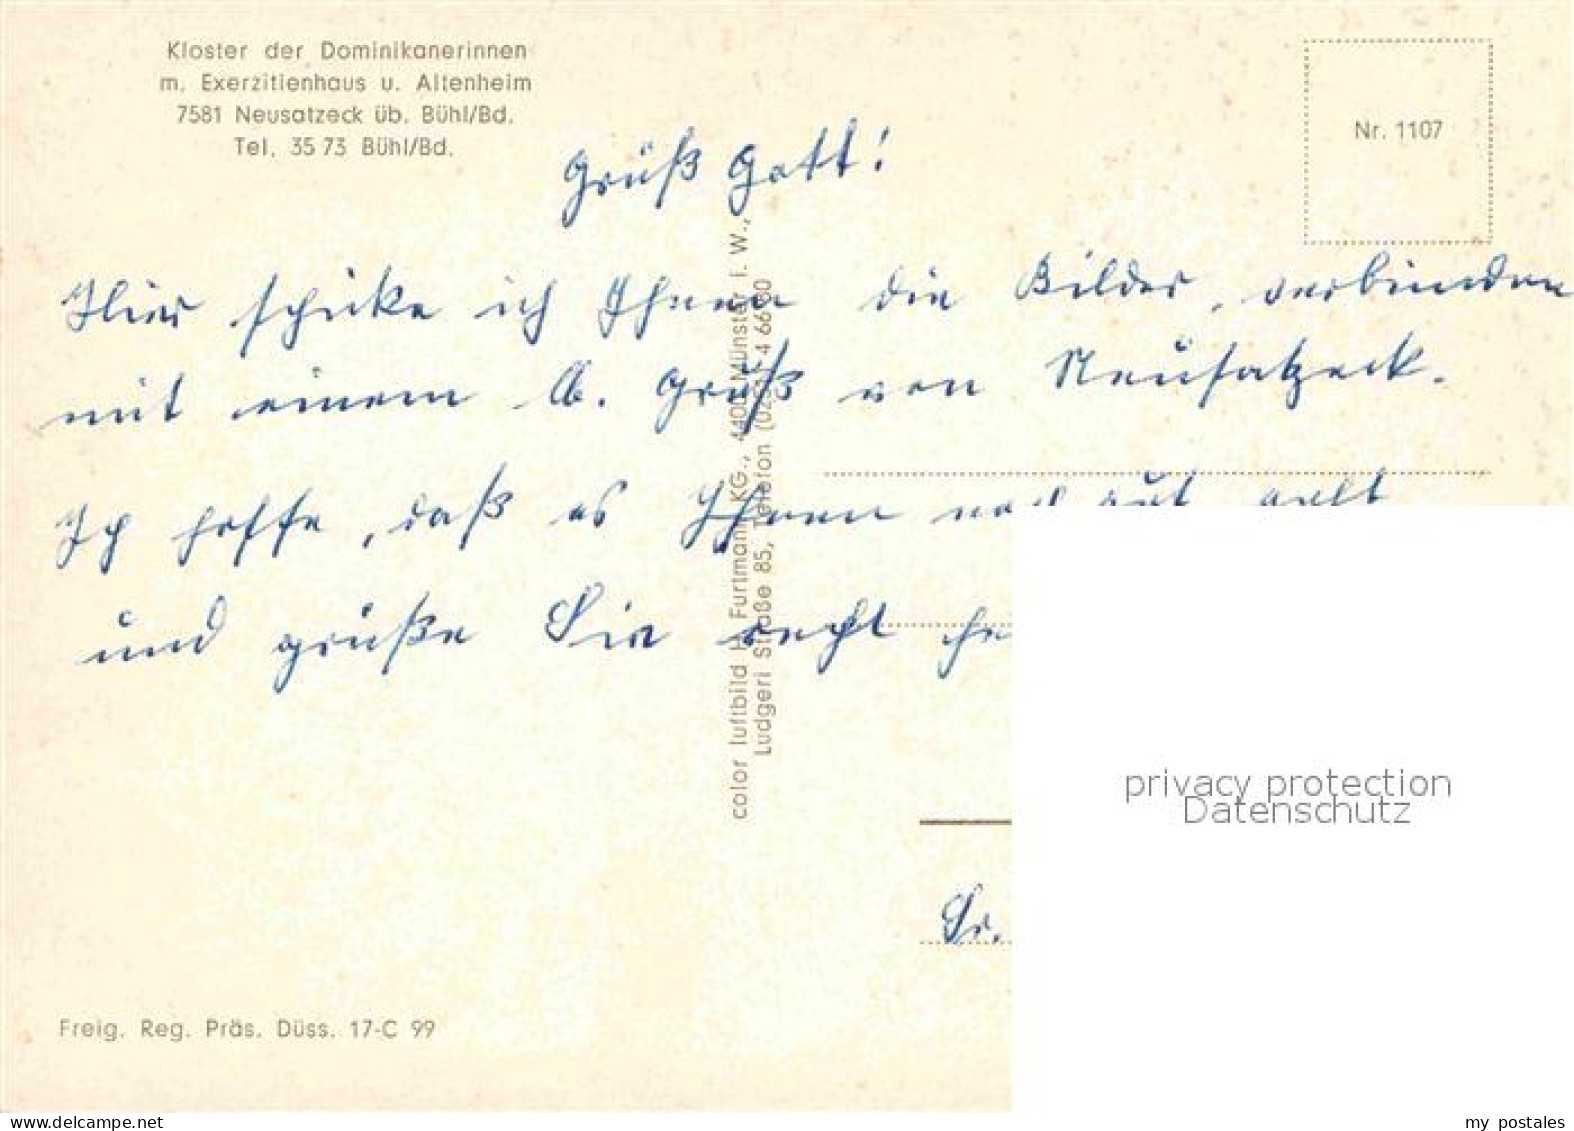 Kloster der Dominikanerinnen
m. Exerzitienhaus u. Altenheim
7581 Neusatzeck üb. Bühl/Bd.
Tel. 35 73 Bühl/Bd.
Nr. 1107
Grüß Gott!
Hier schicke ich Ihnen die Bilder, verbunden
mit einem lb. Gruß von Neusatzeck.
Ich hoffe, daß es Ihnen noch gut geht
und grüße Sie recht
color luftbild H. Furtmann KG., 4400 Münster i. W.,
Ludgeri Straße 85, Telefon
Sr.
Freig. Reg. Präs. Düss. 17-C 99
privacy protection
Datenschutz
my postales